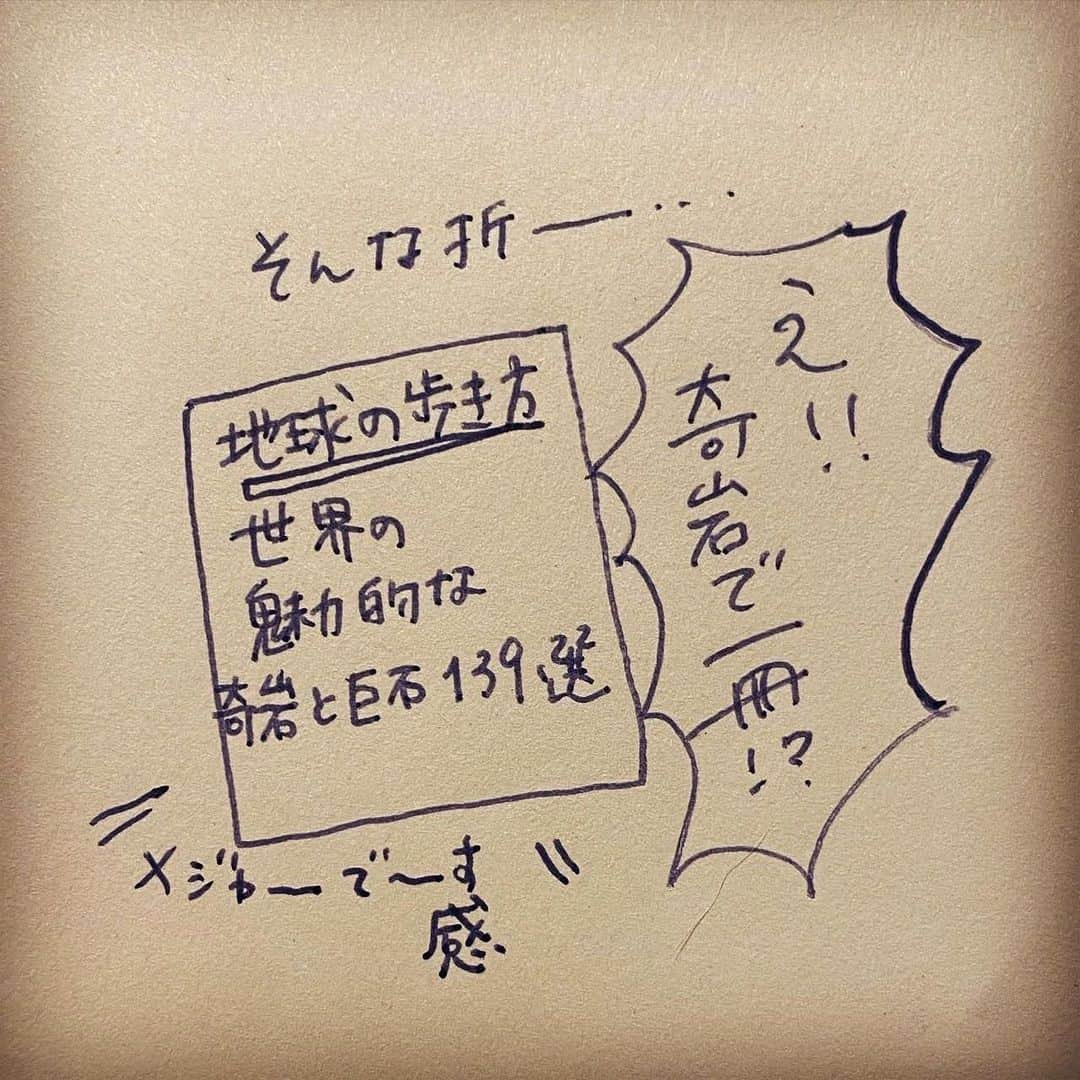 そんな折ー…
地球の歩き方
世界の
魅力的な
奇岩と巨石139選
え!!
奇岩で
一冊!?
メジャーでーす
感